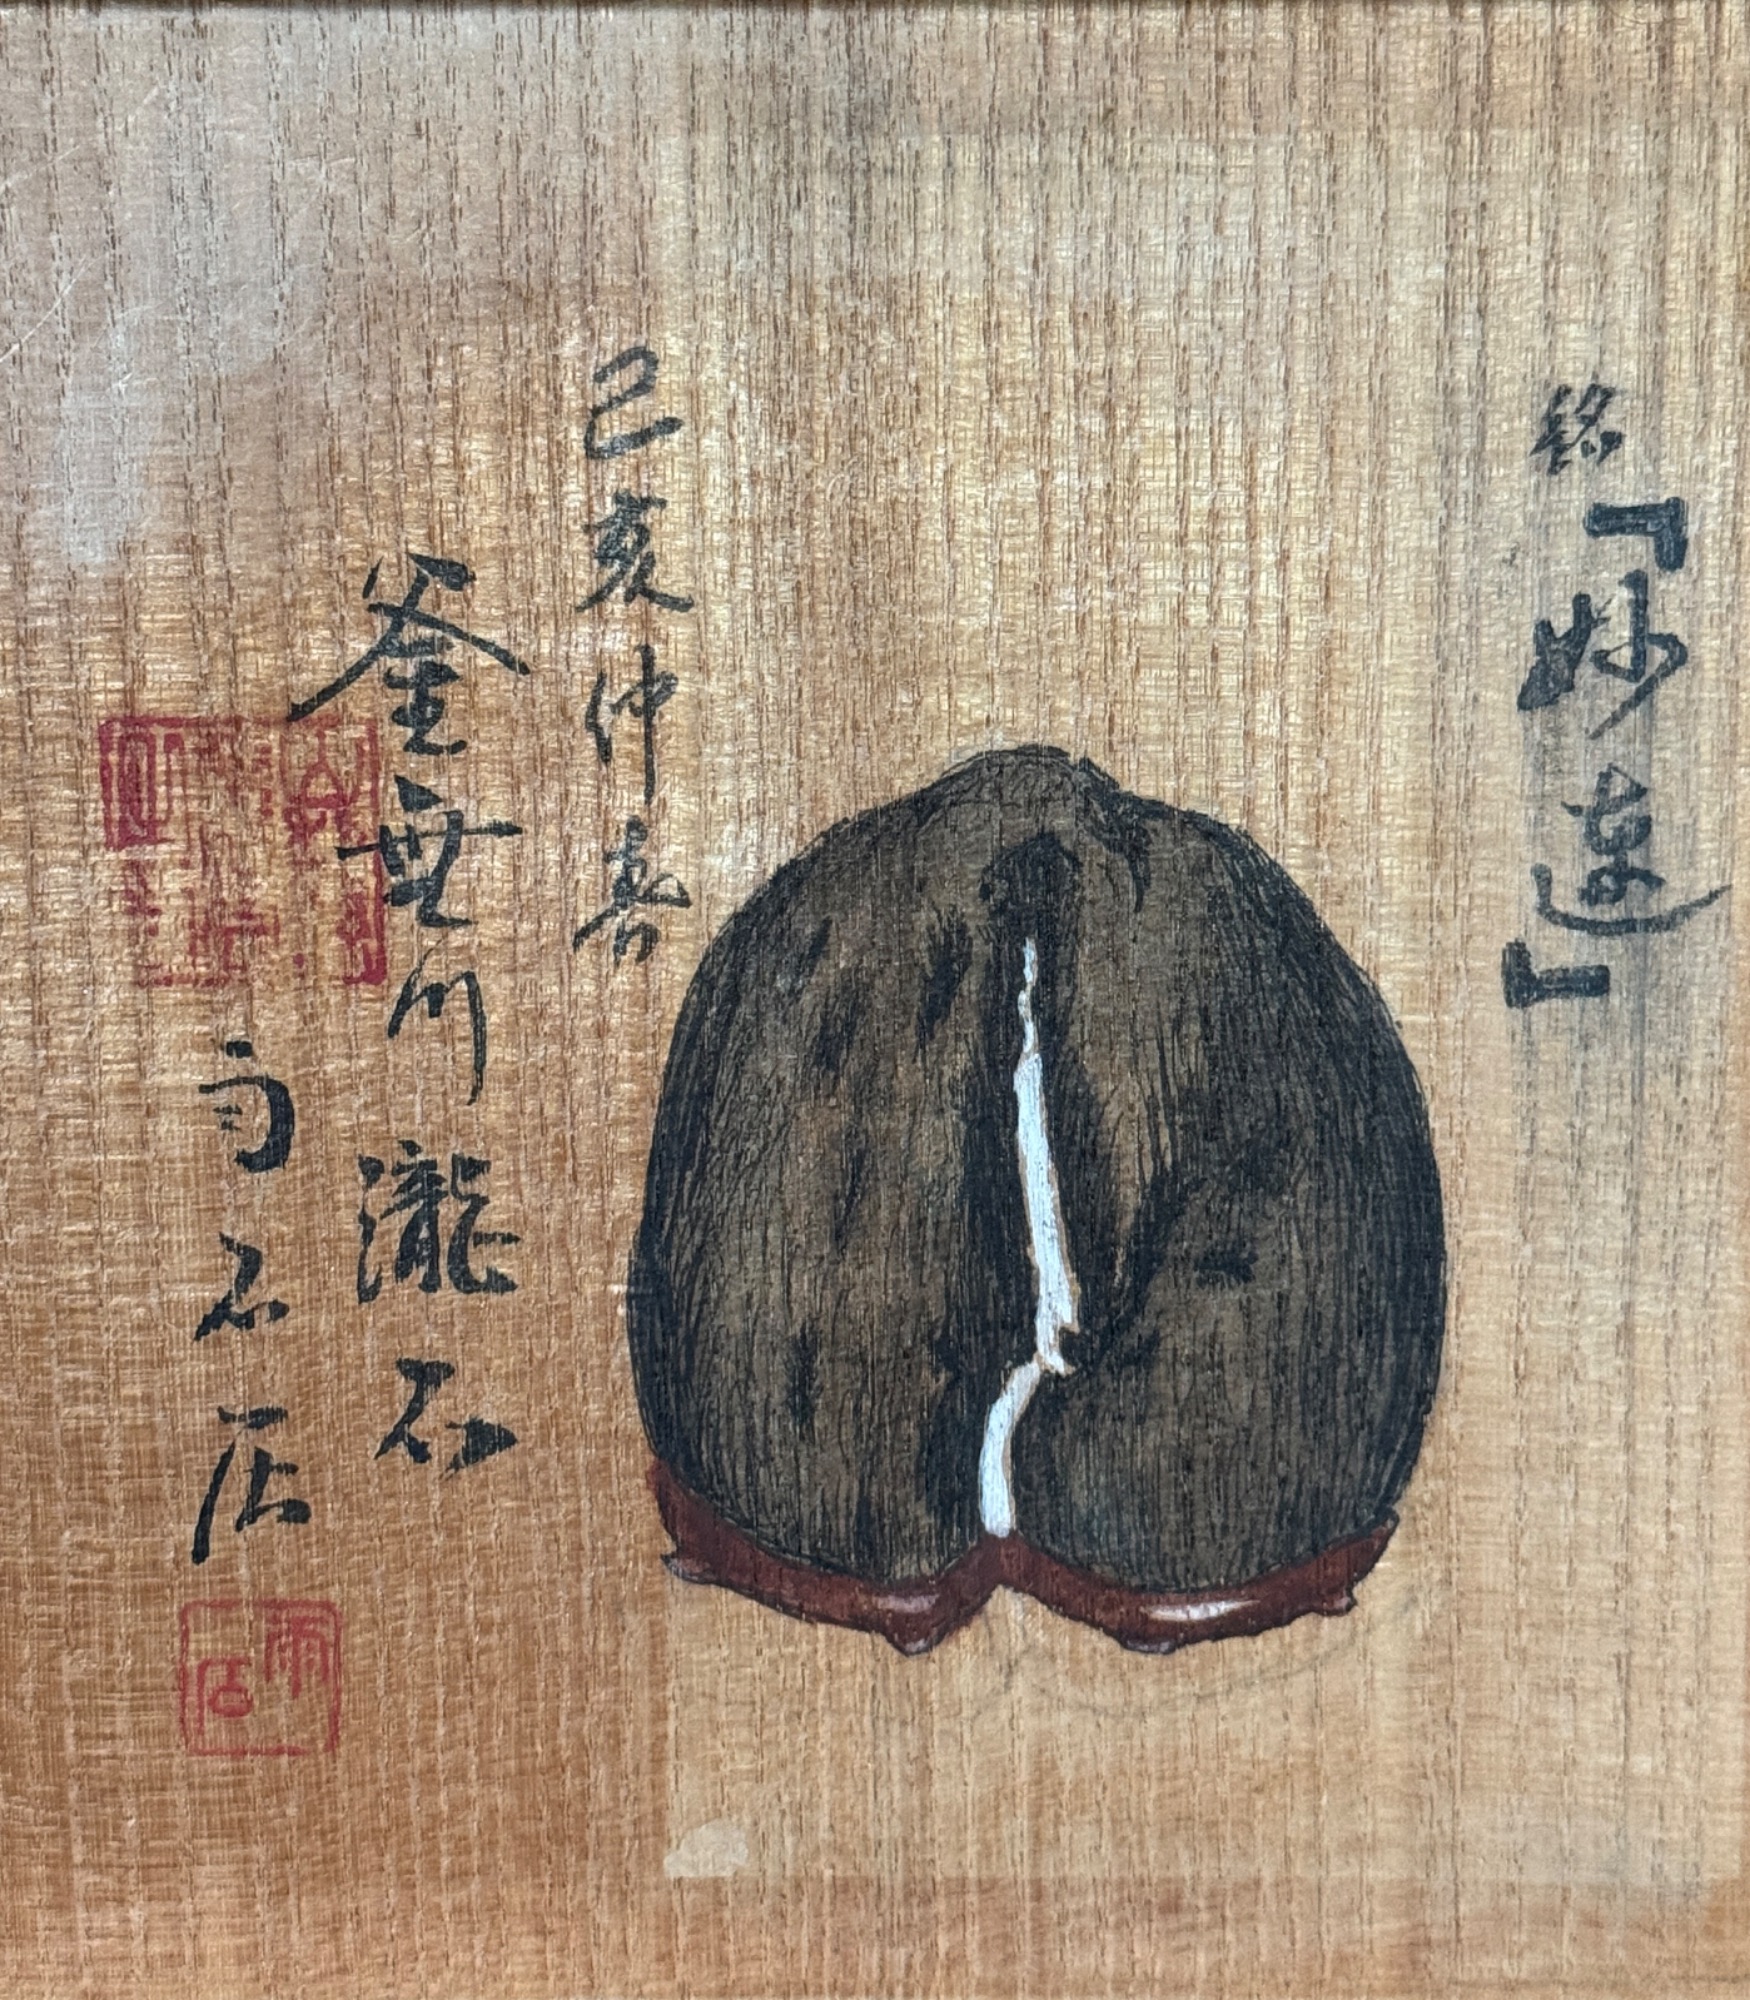 銘
『妙蓮』
己亥仲春
釜無川瀧石
雨石居
雨石